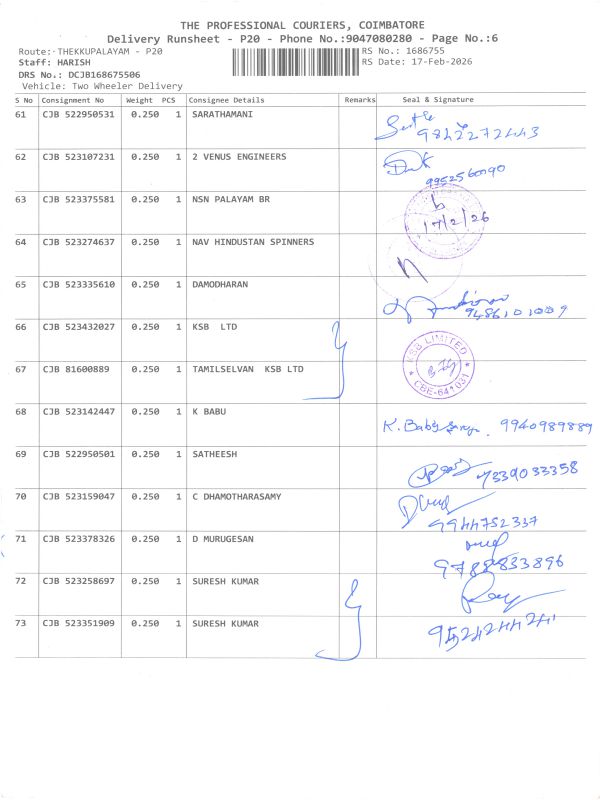 THE PROFESSIONAL COURIERS, COIMBATORE
Delivery Runsheet - P20 - Phone No.:9047080280 - Page No.:6
Route: THEKKUPALAYAM - P20
RS No.: 1686755
Staff: HARISH
RS Date: 17-Feb-2026
DRS No.: DCJB168675506
Vehicle: Two Wheeler Delivery
S No Consignment No Weight PCS Consignee Details Remarks Seal & Signature
61 CJB 522950531 0.250 1 SARATHAMANI
62 CJB 523107231 0.250 1 2 VENUS ENGINEERS
63 CJB 523375581 0.250 1 NSN PALAYAM BR
17/2/26
64 CJB 523274637 0.250 1 NAV HINDUSTAN SPINNERS
65 CJB 523335610 0.250 1 DAMODHARAN
9486101009
66 CJB 523432027 0.250 1 KSB LTD
KSB LIMITED
CBE-641 031
67 CJB 81600889 0.250 1 TAMILSELVAN KSB LTD
68 CJB 523142447 0.250 1 K BABU
K. Babu 9940989889
69 CJB 522950501 0.250 1 SATHEESH
7339033358
70 CJB 523159047 0.250 1 C DHAMOTHARASAMY
9944752337
71 CJB 523378326 0.250 1 D MURUGESAN
9788833896
72 CJB 523258697 0.250 1 SURESH KUMAR
73 CJB 523351909 0.250 1 SURESH KUMAR